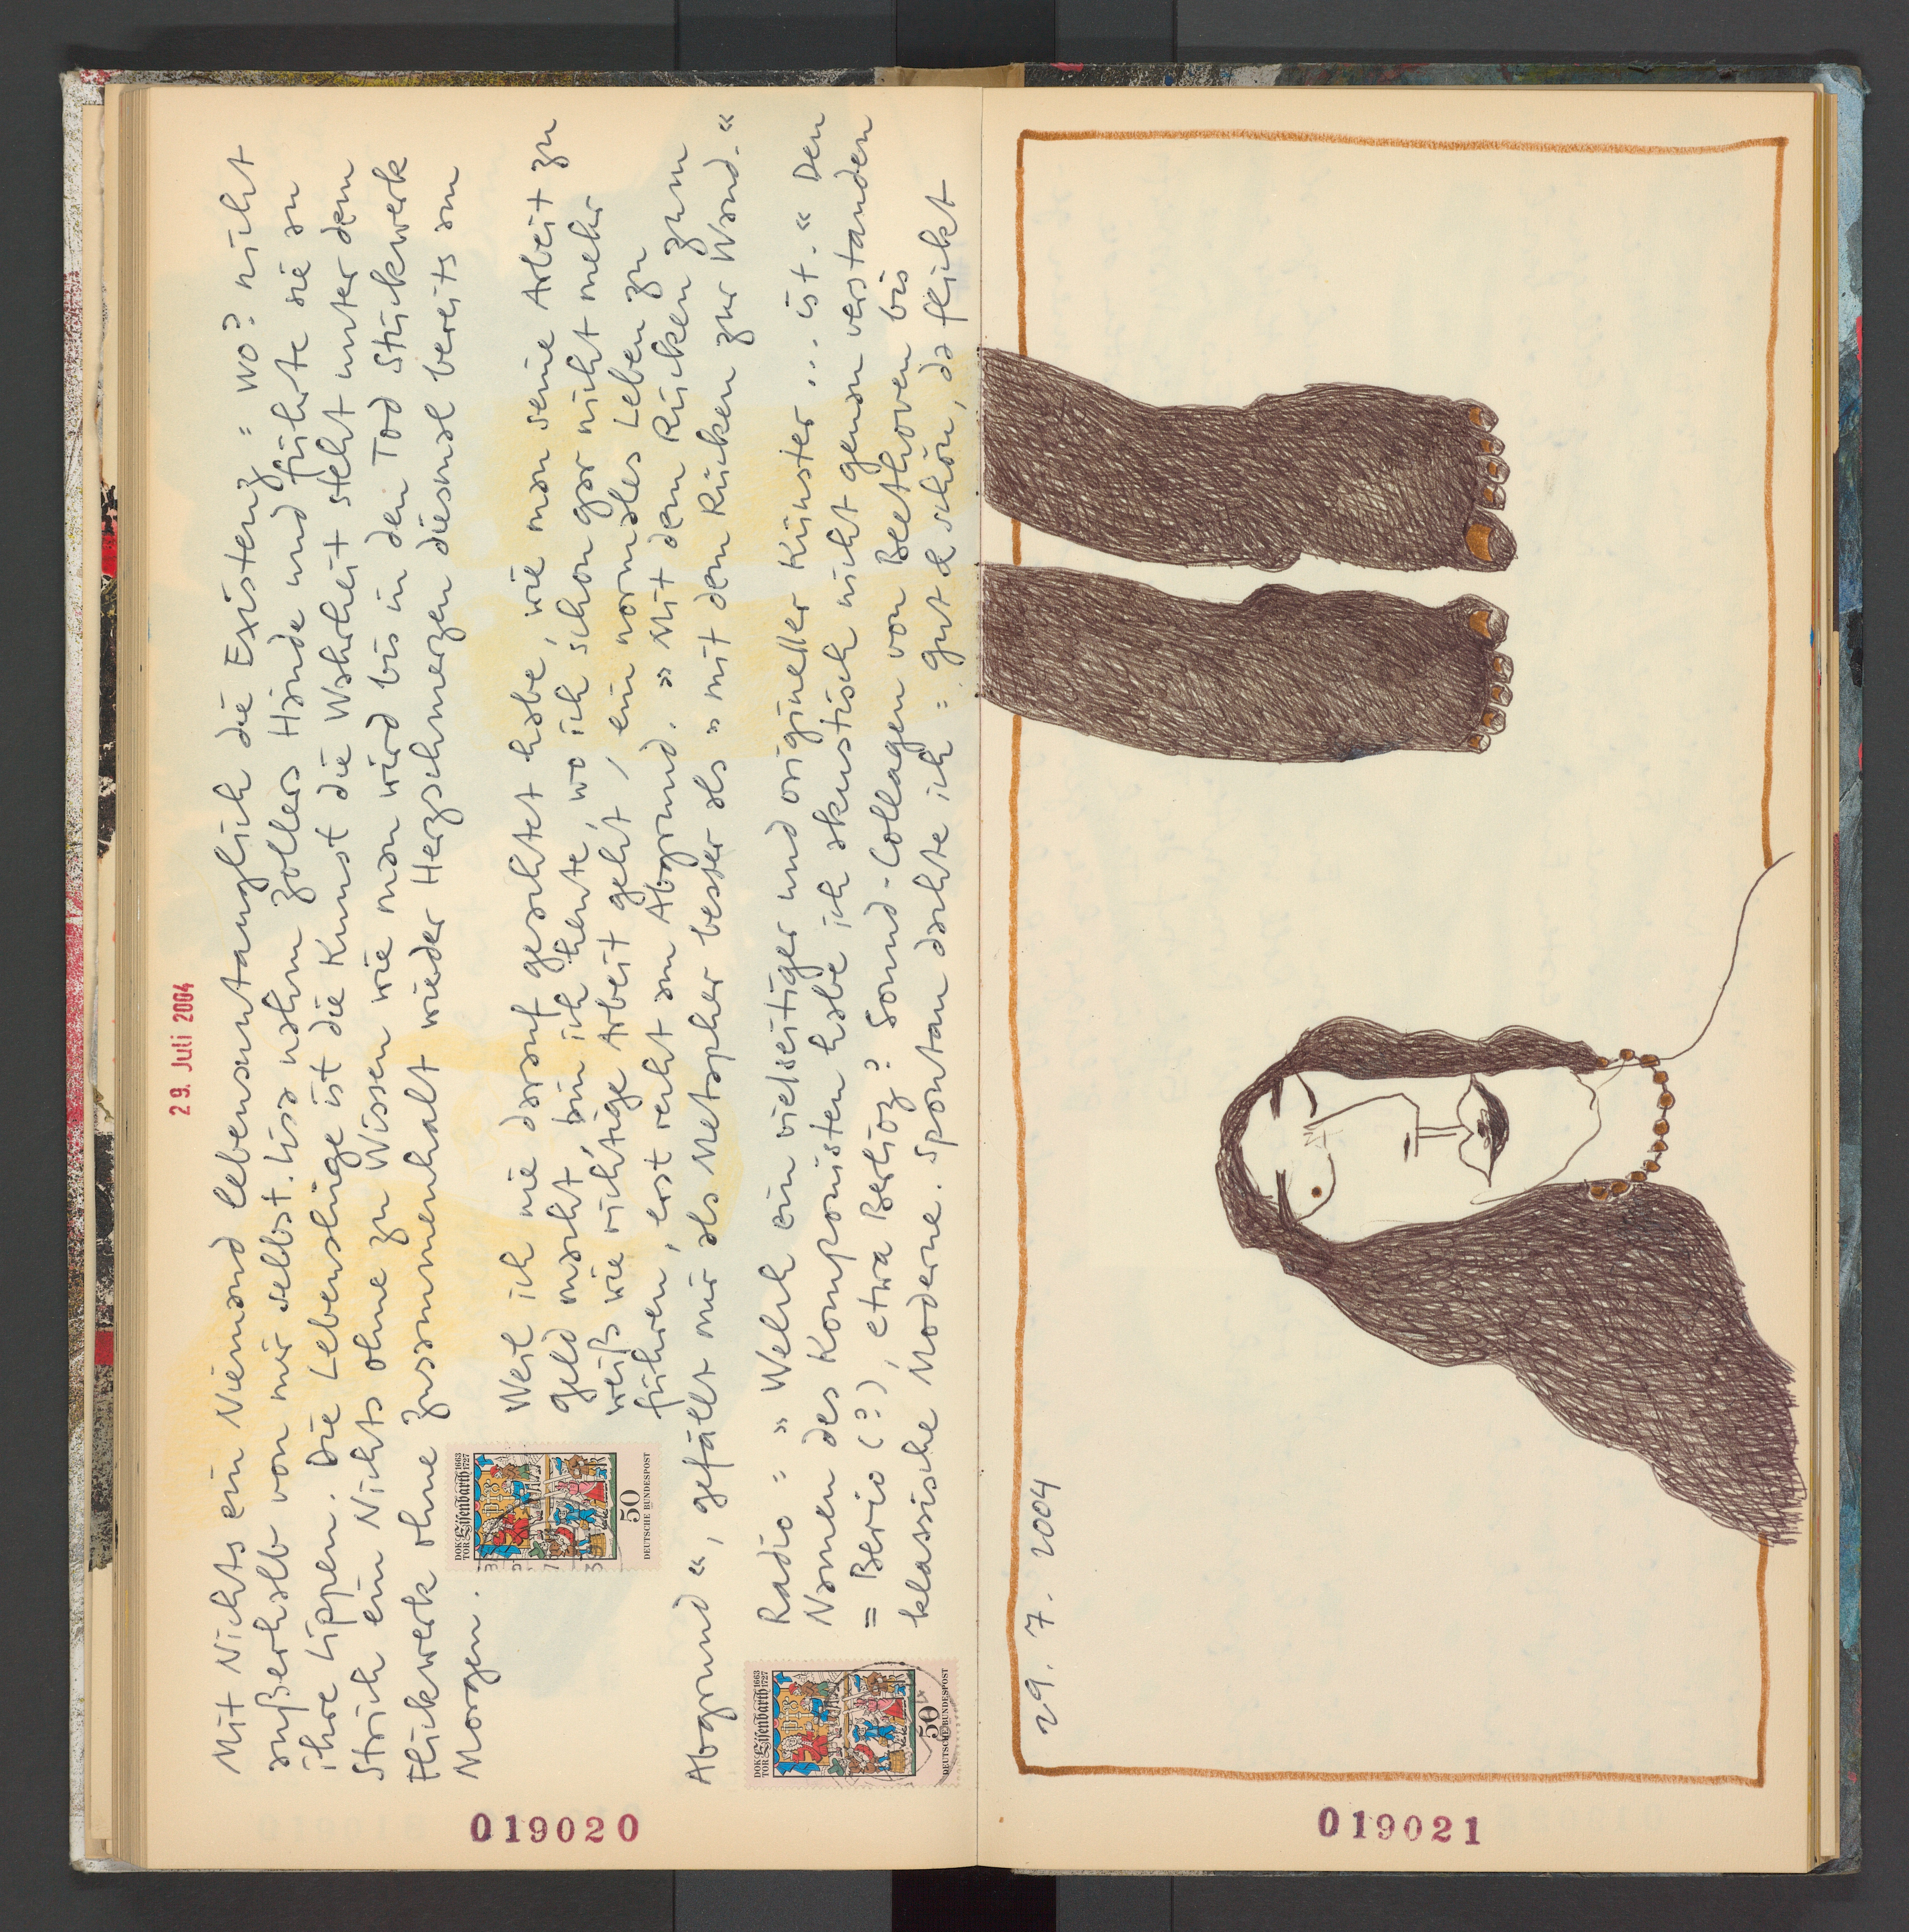 29. Juli 2004
Mit Nichts ein Niemand lebensuntauglich die Existenz = wo? nicht
außerhalb von mir selbst. Lisa nahm Zollers Hände und führte sie an
ihre Lippen. Die Lebenslüge ist die Kunst die Wahrheit steht unter dem
Strich ein Nichts ohne zu Wissen wie man wird bis in den Tod Stückwerk
Flickwerk ohne Zusammenhalt wieder Herzschmerzen diesmal bereits am
Morgen.
Weil ich nie darauf geachtet habe, wie man seine Arbeit zu
Geld macht, bin ich heute, wo ich schon gar nicht mehr
weiß wie richtige Arbeit geht, ein normales Leben zu
führen, erst recht am Abgrund. » Mit dem Rücken zum
Abgrund «, gefällt mir als Metapher besser als » mit dem Rücken zur Wand. «
Radio : » Welch ein vielseitiger und origineller Künster ... ist. « Den
Namen des Komponisten habe ich akustisch nicht genau verstanden
= Berio (?), etwa Berlioz? Sound-Collagen von Beethoven bis
klassische Moderne. Spontan dachte ich = gut & schön, da flickt
DOKTOR Eisenbarth 1663 1727
50
DEUTSCHE BUNDESPOST
DOKTOR Eisenbarth 1663 1727
50
DEUTSCHE BUNDESPOST
019020
29. 7. 2004
019021